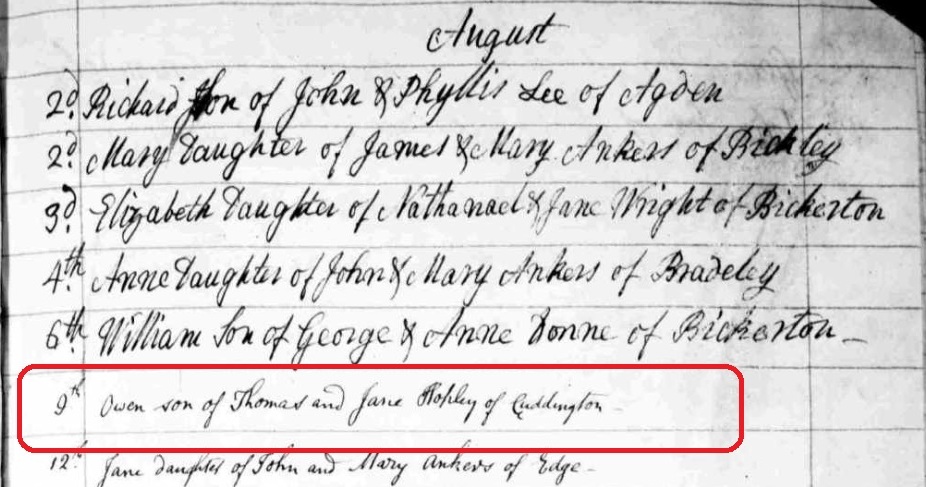 August
2d. Richard Son of John & Phyllis Lee of Agden
2d. Mary Daughter of James & Mary Ankers of Bickley
3d. Elizabeth Daughter of Nathanael & Jane Wright of Bickerton
4th. Anne Daughter of John & Mary Ankers of Bradeley
6th. William Son of George & Anne Donne of Bickerton
9th Owen son of Thomas and Jane Hopley of Cuddington
12th Jane daughter of John and Mary Ankers of Edge